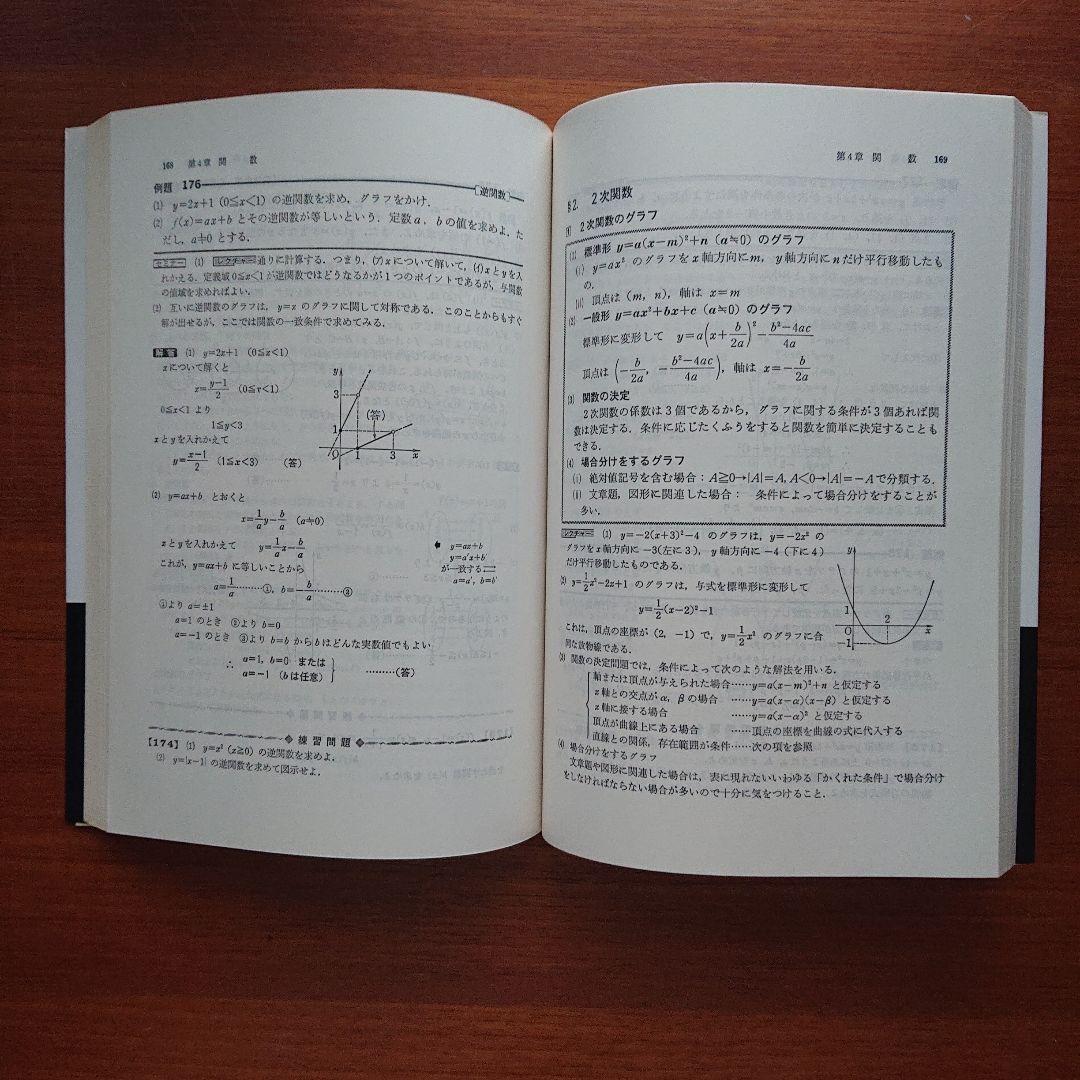 168 第4章 関 数
例題 176
逆関数
(1) y=2x+1 (0≦x<1) の逆関数を求め,グラフをかけ.
(2) f(x)=ax+b とその逆関数が等しいという.定数 a, b の値を求めよ.た
だし,a≠0 とする.
セミナー (1) レクチャー通りに計算する.つまり,(ア)x について解いて,(イ)x と y を入
れかえる.定義域 0≦x<1 が逆関数ではどうなるかが1つのポイントであるが,与関数
の値域を求めればよい.
(2) 互いに逆関数のグラフは,y=x のグラフに関して対称である. このことからもすぐ
解が出せるが,ここでは関数の一致条件で求めてみる.
解答 (1) y=2x+1 (0≦x<1)
x について解くと
x=(y-1)/2 (0≦x<1)
0≦x<1 より
1≦y<3
x と y を入れかえて
y=(x-1)/2 (1≦x<3) (答)
y
3
(答)
1
O 1 3 x
(2) y=ax+b とおくと
x=1/a y-b/a (a≠0)
x と y を入れかえて y=1/a x-b/a
これが,y=ax+b に等しいことから
a=1/a ………①, b=-b/a ………②
y=ax+b
y=a'x+b'
が一致する⇄
a=a', b=b'
①より a=±1
a=1 のとき ②より b=0
a=-1 のとき ②より b=b から b はどんな実数値でもよい
∴ a=1, b=0 または
a=-1 (b は任意) ………(答)
練習問題
【174】 (1) y=x² (x≧0) の逆関数を求めよ.
(2) y=|x-1| の逆関数を求めて図示せよ.
第4章 関 数 169
§2. 2次関数
[1] 2次関数のグラフ
(1) 標準形 y=a(x-m)²+n (a≠0) のグラフ
(i) y=ax² のグラフを x 軸方向に m, y 軸方向に n だけ平行移動したも
の.
(ii) 頂点は (m, n),軸は x=m
(2) 一般形 y=ax²+bx+c (a≠0) のグラフ
標準形に変形して y=a(x+b/2a)²-(b²-4ac)/4a
頂点は (-b/2a, -(b²-4ac)/4a),軸は x=-b/2a
(3) 関数の決定
2次関数の係数は3個であるから,グラフに関する条件が3個あれば関
数は決定する.条件に応じたくふうをすると関数を簡単に決定することも
できる.
(4) 場合分けをするグラフ
(i) 絶対値記号を含む場合:A≧0→|A|=A, A<0→|A|=-A で分類する.
(ii) 文章題,図形に関連した場合: 条件によって場合分けをすることが
多い.
レクチャー (1) y=-2(x+3)²-4 のグラフは,y=-2x² の
グラフを x 軸方向に -3(左に3),y 軸方向に -4(下に4)
だけ平行移動したものである.
(2) y=1/2 x²-2x+1 のグラフは,与式を標準形に変形して
y=1/2 (x-2)²-1
これは,頂点の座標が (2, -1) で,y=1/2 x² のグラフに合
同な放物線である.
y
1
2
O
x
-1
(3) 関数の決定問題では,条件によって次のような解法を用いる.
軸または頂点が与えられた場合……y=a(x-m)²+n と仮定する
x 軸との交点が α, β の場合 ……y=a(x-α)(x-β) と仮定する
x 軸に接する場合 ……y=a(x-α)² と仮定する
頂点が曲線上にある場合 ……頂点の座標を曲線の式に代入する
直線との関係,存在範囲が条件……次の項を参照
(4) 場合分けをするグラフ
文章題や図形に関連した場合は,表に現れないいわゆる「かくれた条件」で場合分け
をしなければならない場合が多いので十分に気をつけること.